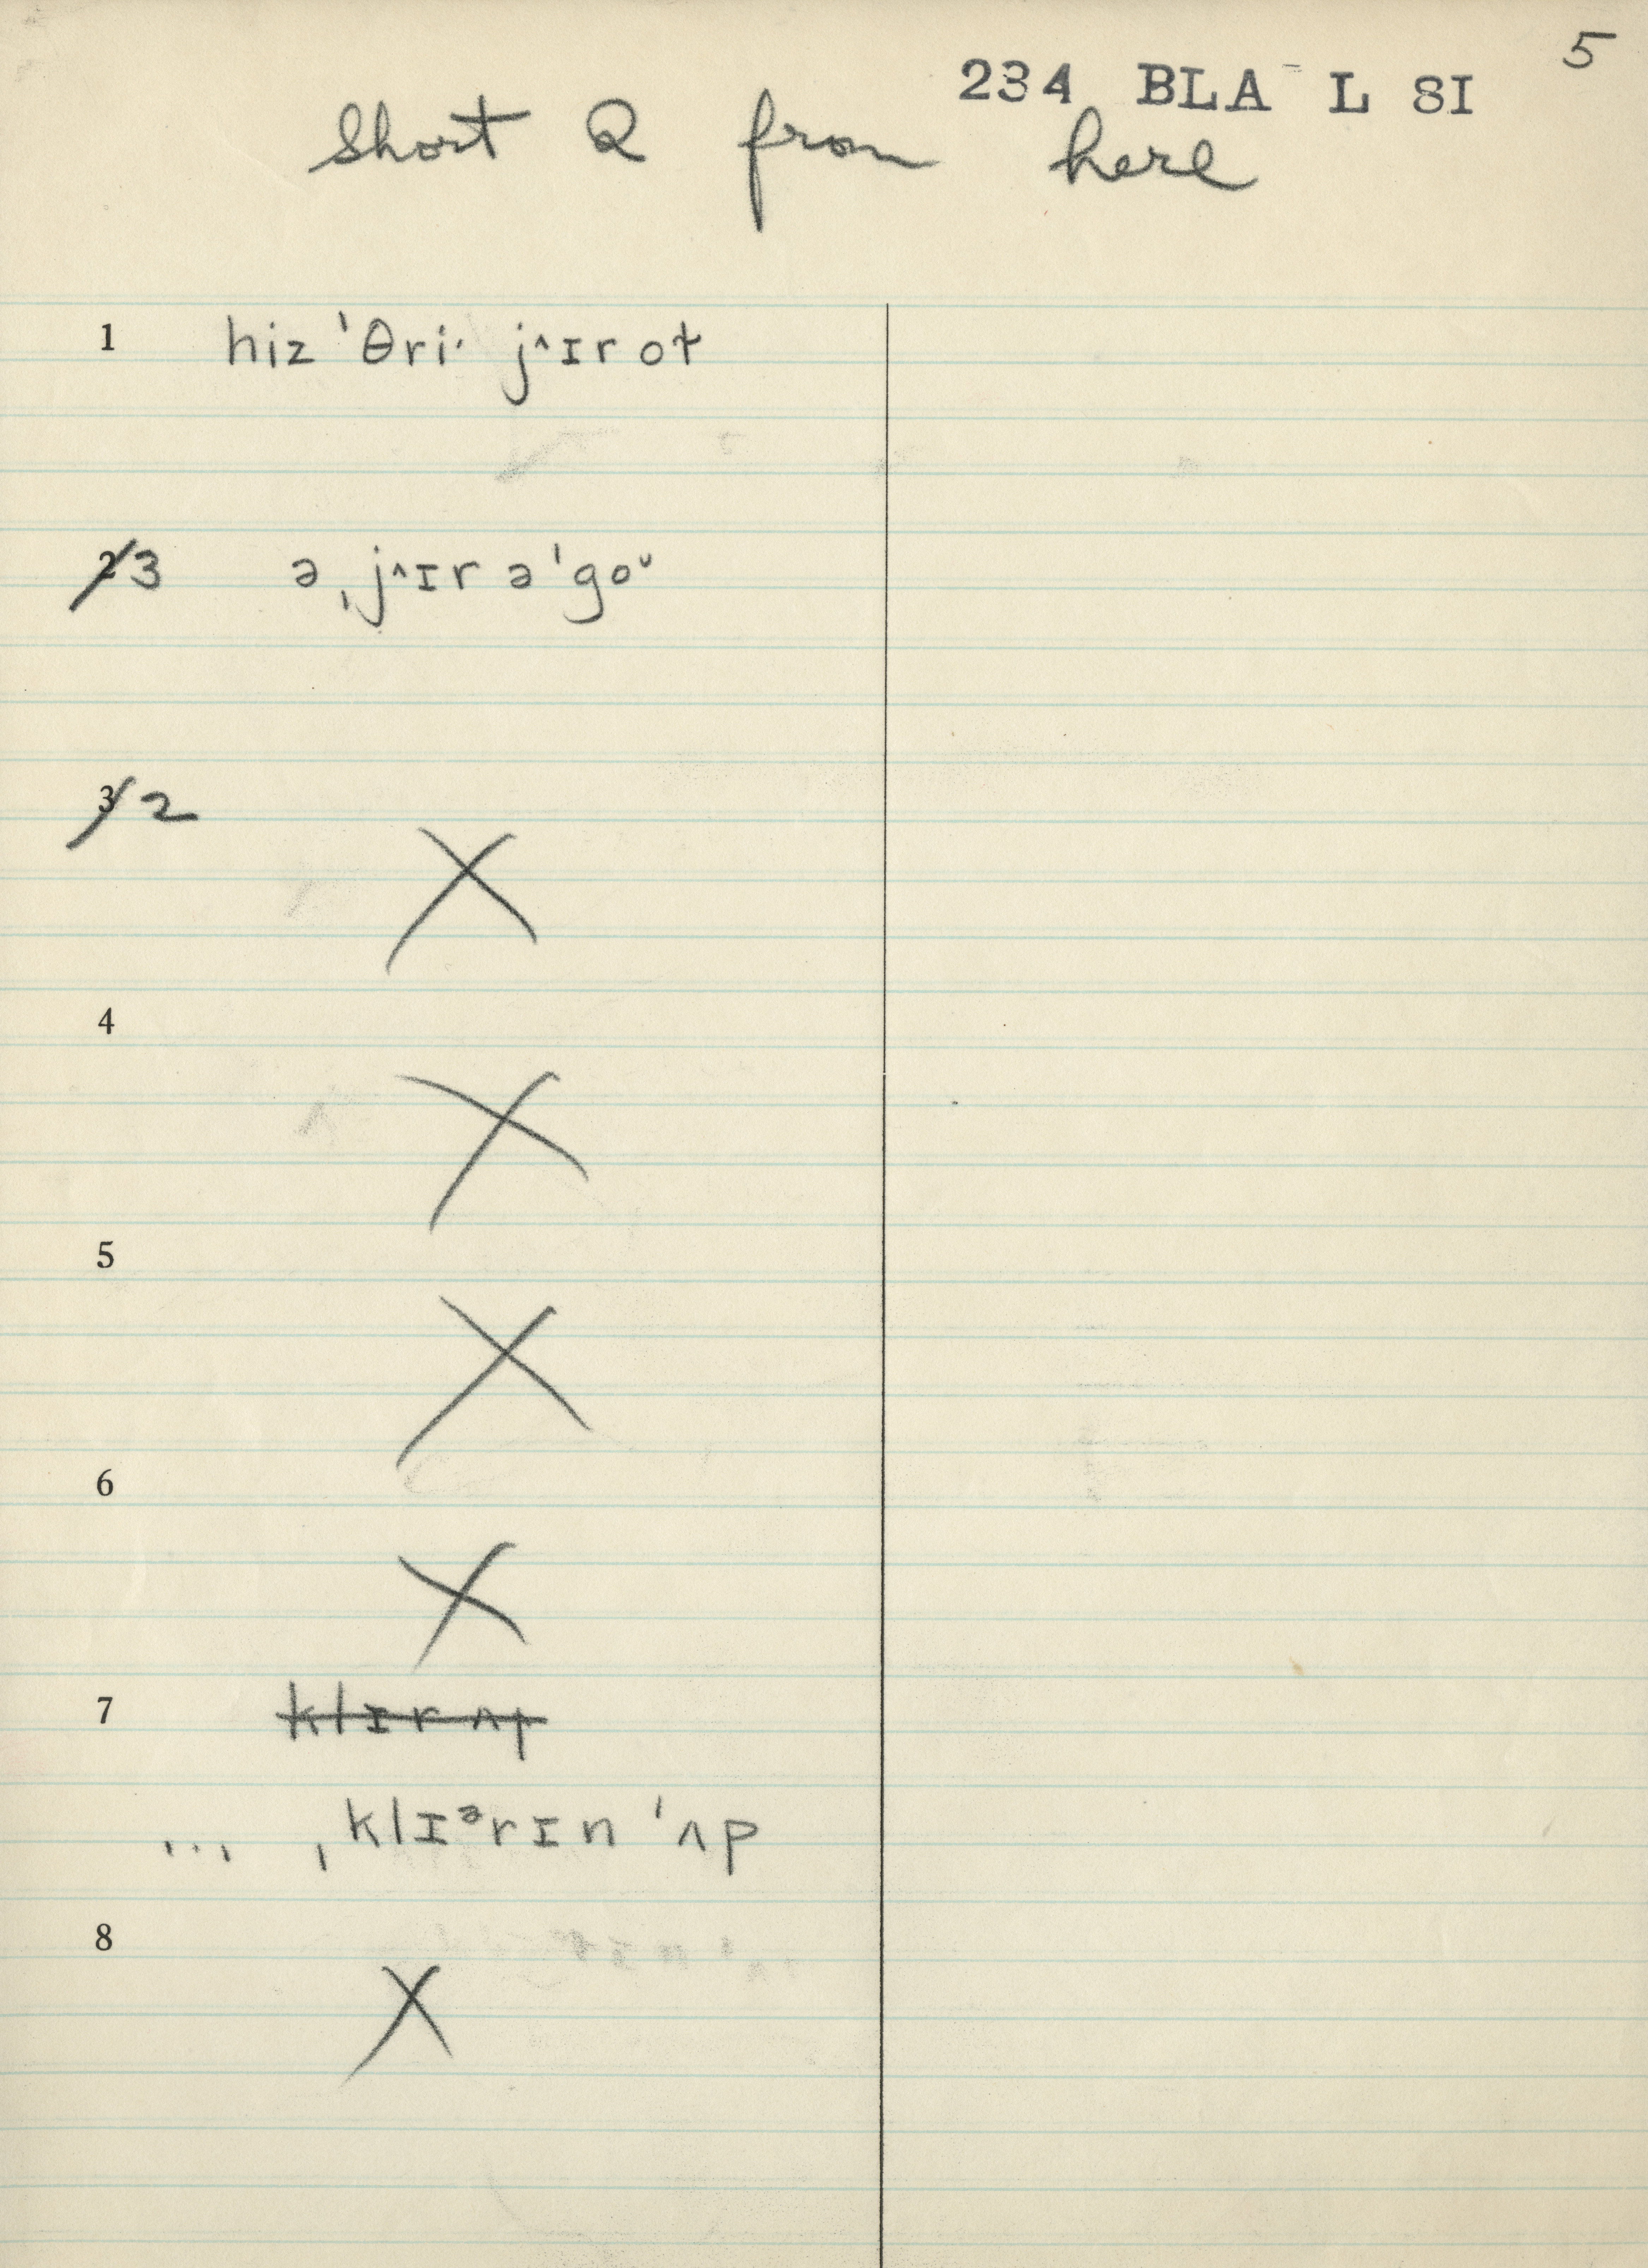 5
234 BLA L SI
Short Q from here
1 hiz ˈθriˑ j^ɪr ot
2 3 ə ˌj^ɪr ə ˈgoᵘ
3 2
X
4
X
5
X
6
X
7 klɪr ʌp
... ˌklɪᵊrɪn ˈʌp
8
X